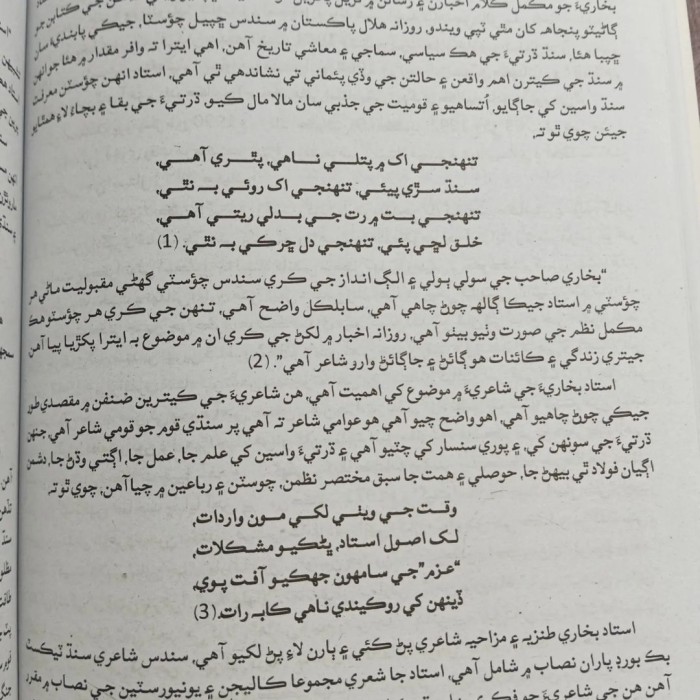 بخاريءَ جو مڪمل ڪلام اخبارن ۽ رسالن ۾
ڳاڻيٽو پنجاهہ کان مٿي ٽپي ويندو. روزانہ هلال پاڪستان ۾ سندس ڇپيل چؤسٽا، جيڪي پابنديءَ سان
ڇپيا هئا، سنڌ ڌرتيءَ جي هڪ سياسي، سماجي ۽ معاشي تاريخ آهن. اهي ايترا تہ وافر مقدار ۾ هئا جو انهن
۾ سنڌ جي ڪيترن اهم واقعن ۽ حالتن جي وڏي پئماني تي نشاندهي ٿي آهي. استاد انهن چؤسٽن معرفت
سنڌ واسين کي جاڳايو. اُتساهيو ۽ قوميت جي جذبي سان مالا مال ڪيو. ڌرتيءَ جي بقا ۽ بچاءُ لاءِ همٿايو
جيئن چوي ٿو تہ:
تنهنجي اک ۾ پتلي ناهي، پٿري آهي،
سنڌ سڙي پيئي، تنهنجي اک روئي بہ نٿي،
تنهنجي بت ۾ رت جي بدلي ريتي آهي،
خلق لڇي پئي، تنهنجي دل ڇرڪي بہ نٿي. (1)
“بخاري صاحب جي سولي ٻولي ۽ الڳ انداز جي ڪري سندس چؤسٽي گهڻي مقبوليت ماڻي هر
چؤسٽي ۾ استاد جيڪا ڳالهہ چوڻ چاهي آهي، سا بلڪل واضح آهي، تنهن جي ڪري هر چؤسٽو هڪ
مڪمل نظم جي صورت وٺيو بيٺو آهي. روزانہ اخبار ۾ لکڻ جي ڪري ان ۾ موضوع بہ ايترا پکڙيا پيا آهن
جيتري زندگي ۽ ڪائنات هو ڳائڻ ۽ جاڳائڻ وارو شاعر آهي”. (2)
استاد بخاريءَ جي شاعريءَ ۾ موضوع کي اهميت آهي، هن شاعريءَ جي ڪيترين صنفن ۾ مقصدي طور
جيڪي چوڻ چاهيو آهي، اهو واضح چيو آهي هو عوامي شاعر تہ آهي پر سنڌي قوم جو قومي شاعر آهي جنهن
ڌرتيءَ جي سونهن کي، ۽ پوري سنسار کي چٽيو آهي ۽ ڌرتيءَ واسين کي علم جا، عمل جا، اڳتي وڌڻ جا، دشمن
اڳيان فولاد ٿي بيهڻ جا، حوصلي ۽ همت جا سبق مختصر نظمن، چوسٽن ۽ رباعين ۾ چيا آهن. چوي ٿو تہ:
وقت جي ويٺي لکي مون واردات،
لک اصول استاد، ڀڃڪيو مشڪلات،
“عزم” جي سامهون جهڪيو آفت پوي،
ڏينهن کي روڪيندي ناهي ڪابہ رات. (3)
استاد بخاري طنزيہ ۽ مزاحيہ شاعري پڻ ڪئي ۽ ٻارن لاءِ پڻ لکيو آهي، سندس شاعري سنڌ ٽيڪسٽ
بڪ بورڊ پاران نصاب ۾ شامل آهي، استاد جا شعري مجموعا ڪاليجن ۽ يونيورسٽين جي نصاب ۾ مقرر
آهن هن جي شاعري